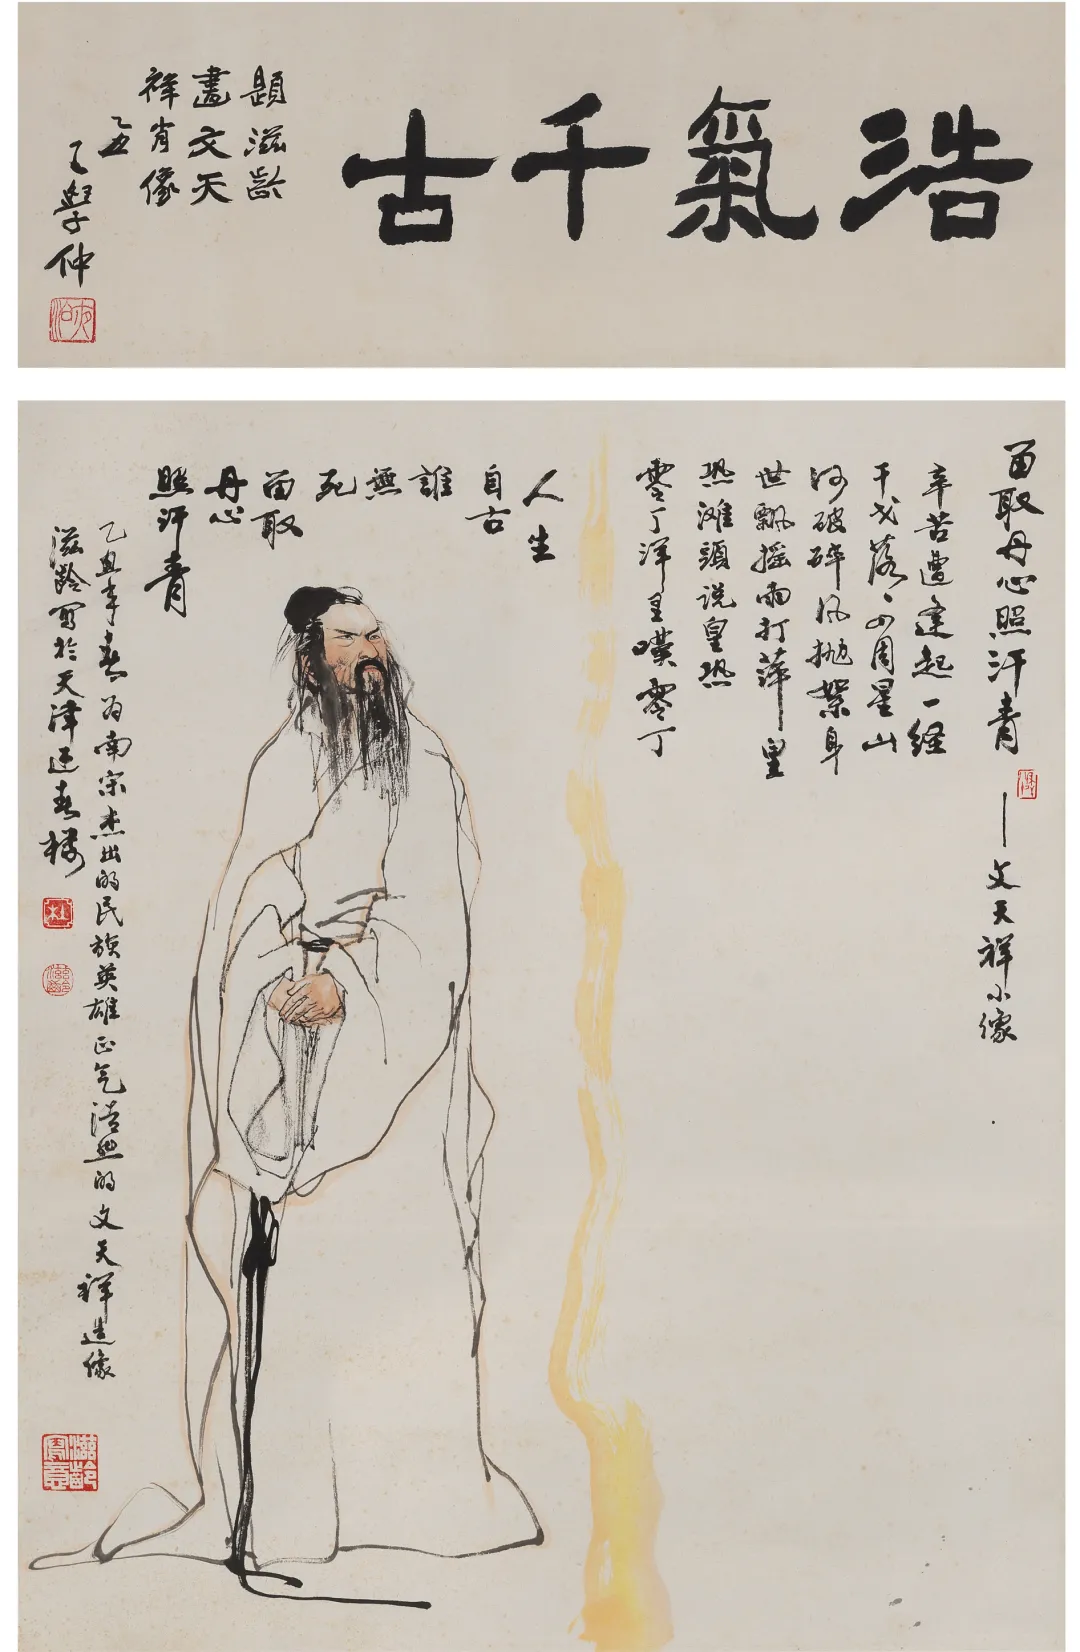 浩氣千古
題滋齡
畫文天
祥肖像
乙丑
王學仲
夜泊
留取丹心照汗青
——文天祥小像
辛苦遭逢起一経
干戈落〻四周星山
河破碎风抛絮身
世飄摇雨打萍皇
恐滩頭说皇恐
零丁洋里嘆零丁
人生
自古
誰
無
死
留取
丹心
照汗青
乙丑年春为南宋杰出的民族英雄正气浩然的文天祥造像
滋齡寫於天津迎春楼
杜
滋齡
滋齡寫意